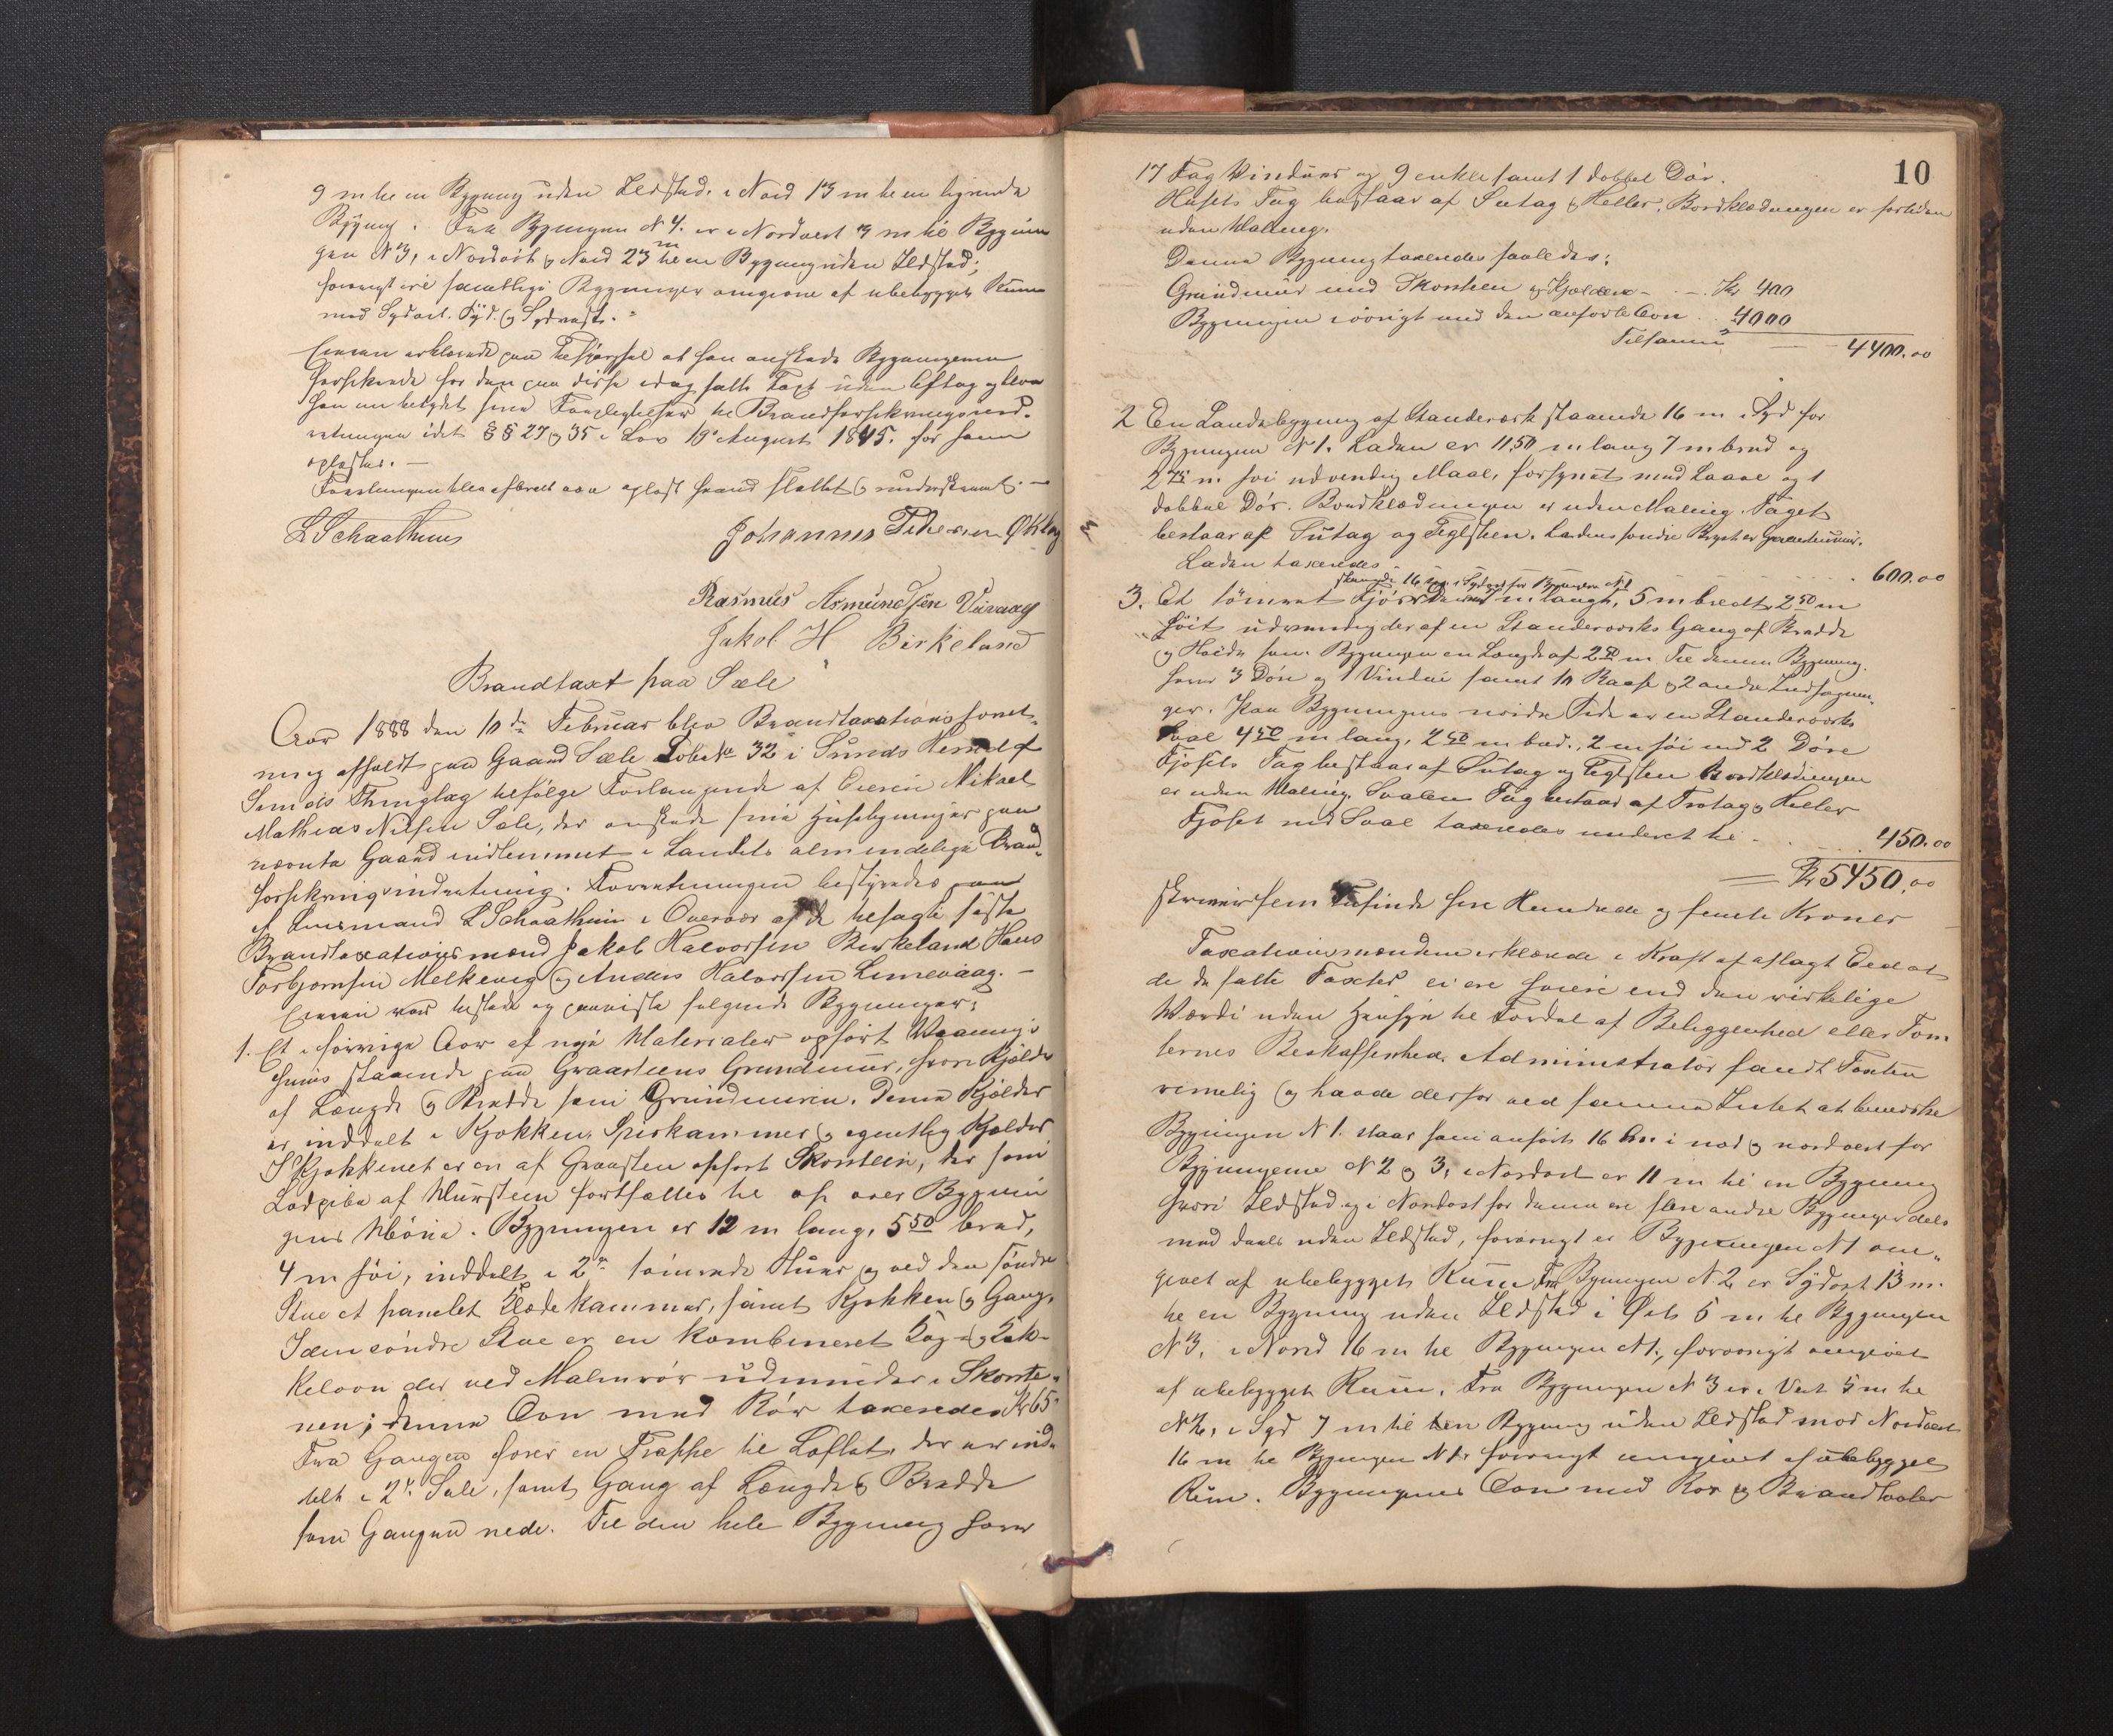 9 m til en Bygning uden Ildsted. i Nord 13 m til en lignende
Bygning. Fra Bygningen N 4. er i Nordvest 3 m til Bygnin
gen N 3, i Nordost & Nord 23 m til en Bygning uden Ildsted;
forøvrigt ere samtlige Bygninger omgivne af ubebygget Rum
mod Sydost. Syd. & Sydvest.
Eieren erklærede paa Tilspørgsel at han ønskede Bygningerne
forsikrede for den paa disse idag satte Taxt uden Aftag og blev
han underrettet sine Forpligtelser til Brandforsikringsind-
retningen idet §§ 27 & 35 i Lov 19 August 1845. for ham
oplæstes. —
Forretningen blev afbrudt oplæst sluttet & underskrevet. —
L Schaathun
Johannes Pedersen Økland
Rasmus Asmundsen Viivaag
Jakob H Birkeland
Brandtaxt paa Sæle
Aar 1888 den 10de Februar blev Brandtaxationsforret-
ning afholdt paa Gaard Sæle Løbe No 32 i Sunds Herred &
Sunds Thinglag tilfølge Forlangende af Eieren Mikael
Mathias Nilsen Sæle, der ønskede sine Husbygninger paa
nævnte Gaard indlemmet i Landets almindelige Brand-
forsikringsindretning. Forretningen bestyredes
af Lensmand L Schaathun i Overvær af de befalte faste
Brandtaxationsmænd Jakob Halvorsen Birkeland Hans
Torbjørnsen Melkevig & Anders Halvorsen Limevaag. —
Eieren var tilstede og paaviste følgende Bygninger:
1. Et i forrige Aar af nye Materialer opført Vaanings
huus staaende paa Graasteens Grundmur, hvori Kjælder
af Længde & Bredde som Grundmuren. Denne Kjælder
er inddelt i Kjøkken, Spiskammer & egentlig Kjælder
I Kjøkkenet er en af Graasten opført Skorsteen, der som
Ladpibe af Mursteen fortsættes til op over Bygnin
gens Møne. Bygningen er 12 m lang, 5 50 bred,
4 m høi, inddelt i 2de tømrede Stuer & ved den søndre
Stue et panelet Klædekammer, samt Kjøkken & Gang.
I den søndre Stue er en kombineret Kog- & Kak-
kelovn der ved Malmrør udmunder i Skorste-
nen; denne Ovn med Rør taxeredes Kr 65
Fra Gangen fører en Trappe til Loftet, der er ind-
delt i 2de Sale, samt Gang af Længde & Bredde
som Gangen nede. Til den hele Bygning hører
10
17 Fag Vinduer og 9 enkle samt 1 dobbel Dør.
Husets Tag bestaar af Sutag & Heller. Bordklædningen er fortiden
uden Maling.
Denne Bygning taxeredes saaledes:
Grundmur med Skorsteen & Kjælder - . - . Kr 400
Bygningen iøvrigt med den anførte Ovn . . 4000
Tilsammen — 4400.00
2 En Ladebygning af Standerverk staaende 16 m i Syd for
Bygningen N 1. Laden er 11,50 m lang 7 m bred og
2 75 m høi udvendig Maal, forsynet med Laave og 1
dobbel Dør. Bordklædningen er uden Maling. Taget
bestaar af Sutag og Teglsteen. Ladens søndre er Graasteensmur.
Laden taxeredes . . . . . 600.00
staaende 16 m i Sydost for Bygningen N 1
3. Et tømret Fjøs m langt, 5 m bredt, 2 50 m
høit udvendig deraf en Standerverks Gang af Bredde
& Høide som Bygningen en Længde af 2 50 m Til denne Bygning
hører 3 Døre og 1 Vindue samt 10 Baase & 2 andre Indhægnin-
ger. Paa Bygningens nordre Side er en Standerverks
Sval 4 50 m lang, 2 50 m bred, 2 m høi med 2 Døre
Fjøsets Tag bestaar af Sutag og Teglsteen Bordklædningen
er uden Maling. Svalens Tag bestaar af Trotag & Heller
Fjøset med Sval taxeredes vurderet til . . . 450.00
Kr 5450,00
skriver fem Tusinde fire Hundrede og femti Kroner
Taxationsmændene erklærede i Kraft af aflagt Eed at
de satte Taxter ei ere høiere end den virkelige
Værdi uden Hensyn til Fordel af Beliggenhed eller Tom
ternes Beskaffenhed. Administrator fandt Taxten
rimelig & havde derfor ved samme Intet at bemærke
Bygningen N 1. staar som anført 16 m i nord & nordvest for
Bygningerne N 2 & 3, i Nordost er 11 m til en Bygning
hvori Ildsted og i Nordost for denne ere flere andre Bygninger dels
med deels uden Ildsted, forøvrigt er Bygningen N 1 om-
givet af ubebygget Rum. Fra Bygningen N 2 er Sydost 13 m.
til en Bygning uden Ildsted i Øst 5 m til Bygningen
N 3, i Nord 16 m til Bygningen N 1, forøvrigt omgivet
af ubebygget Rum. Fra Bygningen N 3 er i Vest 5 m til
N 2, i Syd 7 m til en Bygning uden Ildsted mod Nordvest
16 m til Bygningen N 1 forøvrigt omgivet af ubebygget
Rum. Bygningernes Ovn med Rør & Brandtooler